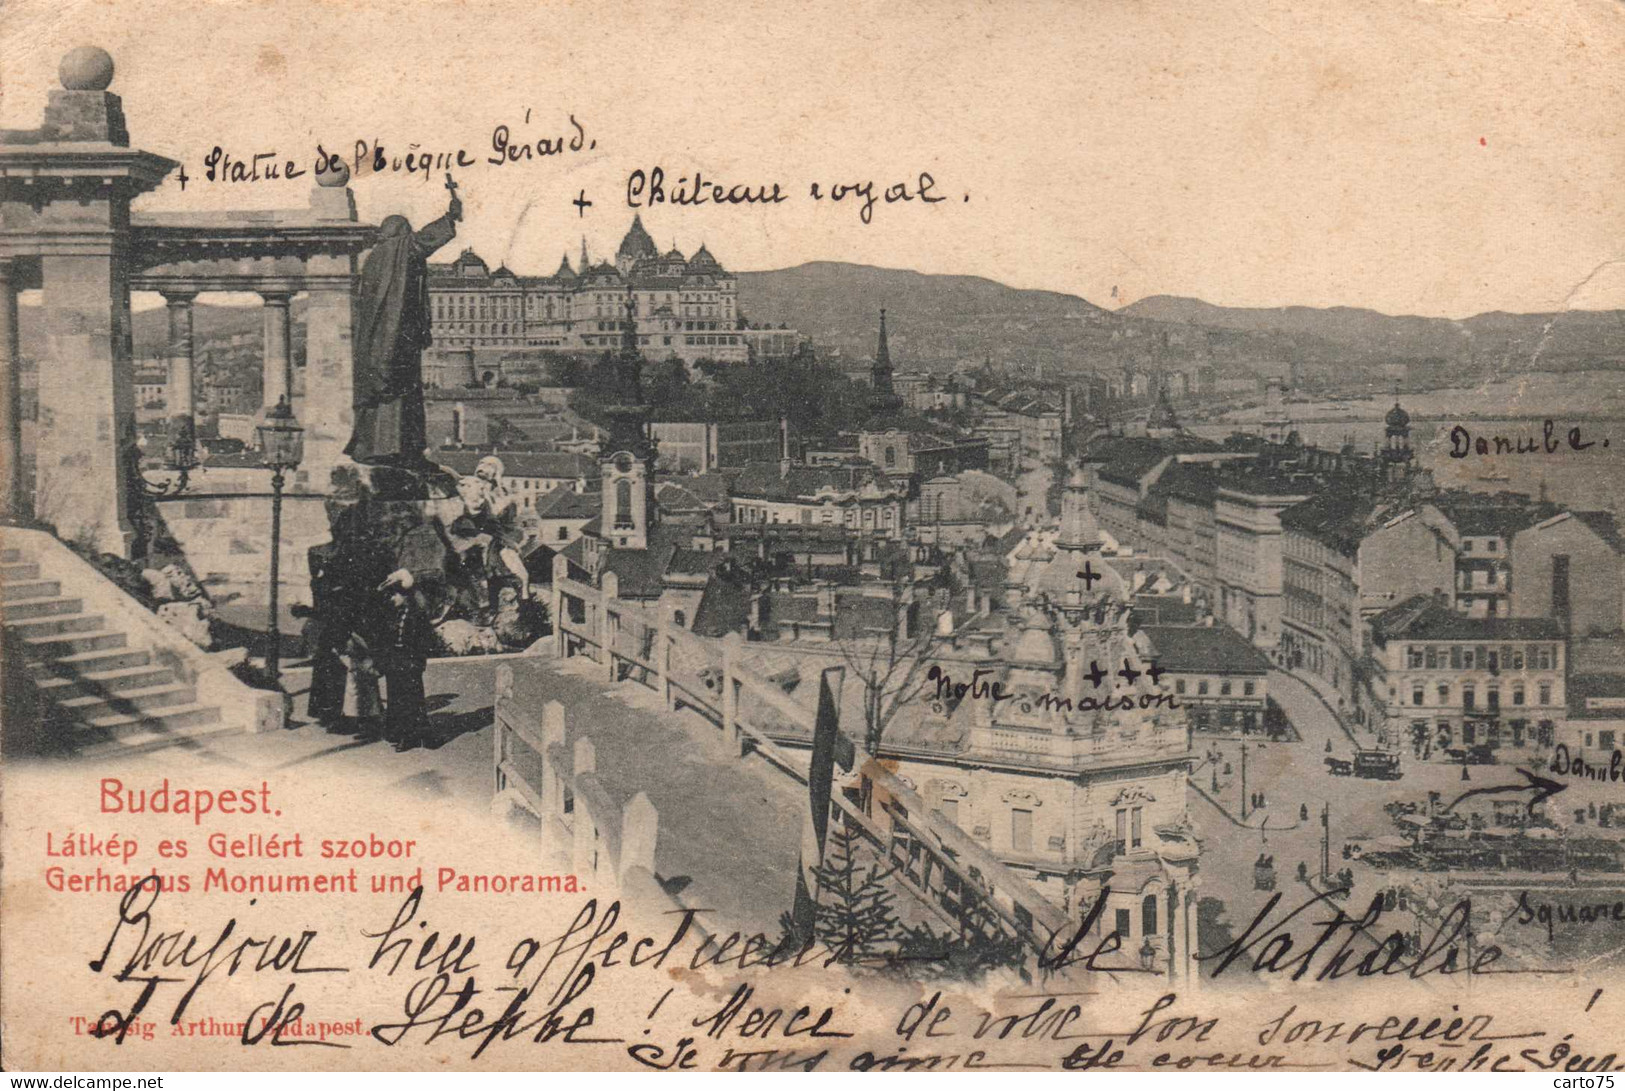 + Statue de l'Evêque Gérard.
+ Château royal.
Danube.
+
+++
Notre maison.
Danube
Square
Budapest.
Látkép es Gellért szobor
Gerhardus Monument und Panorama.
Bonjour bien affectueux de Nathalie
et de Stéphe ! Merci de votre bon souvenir !
Taussig Arthur Budapest.
Je vous aime de coeur Stéphe
delcampe.net
carto75